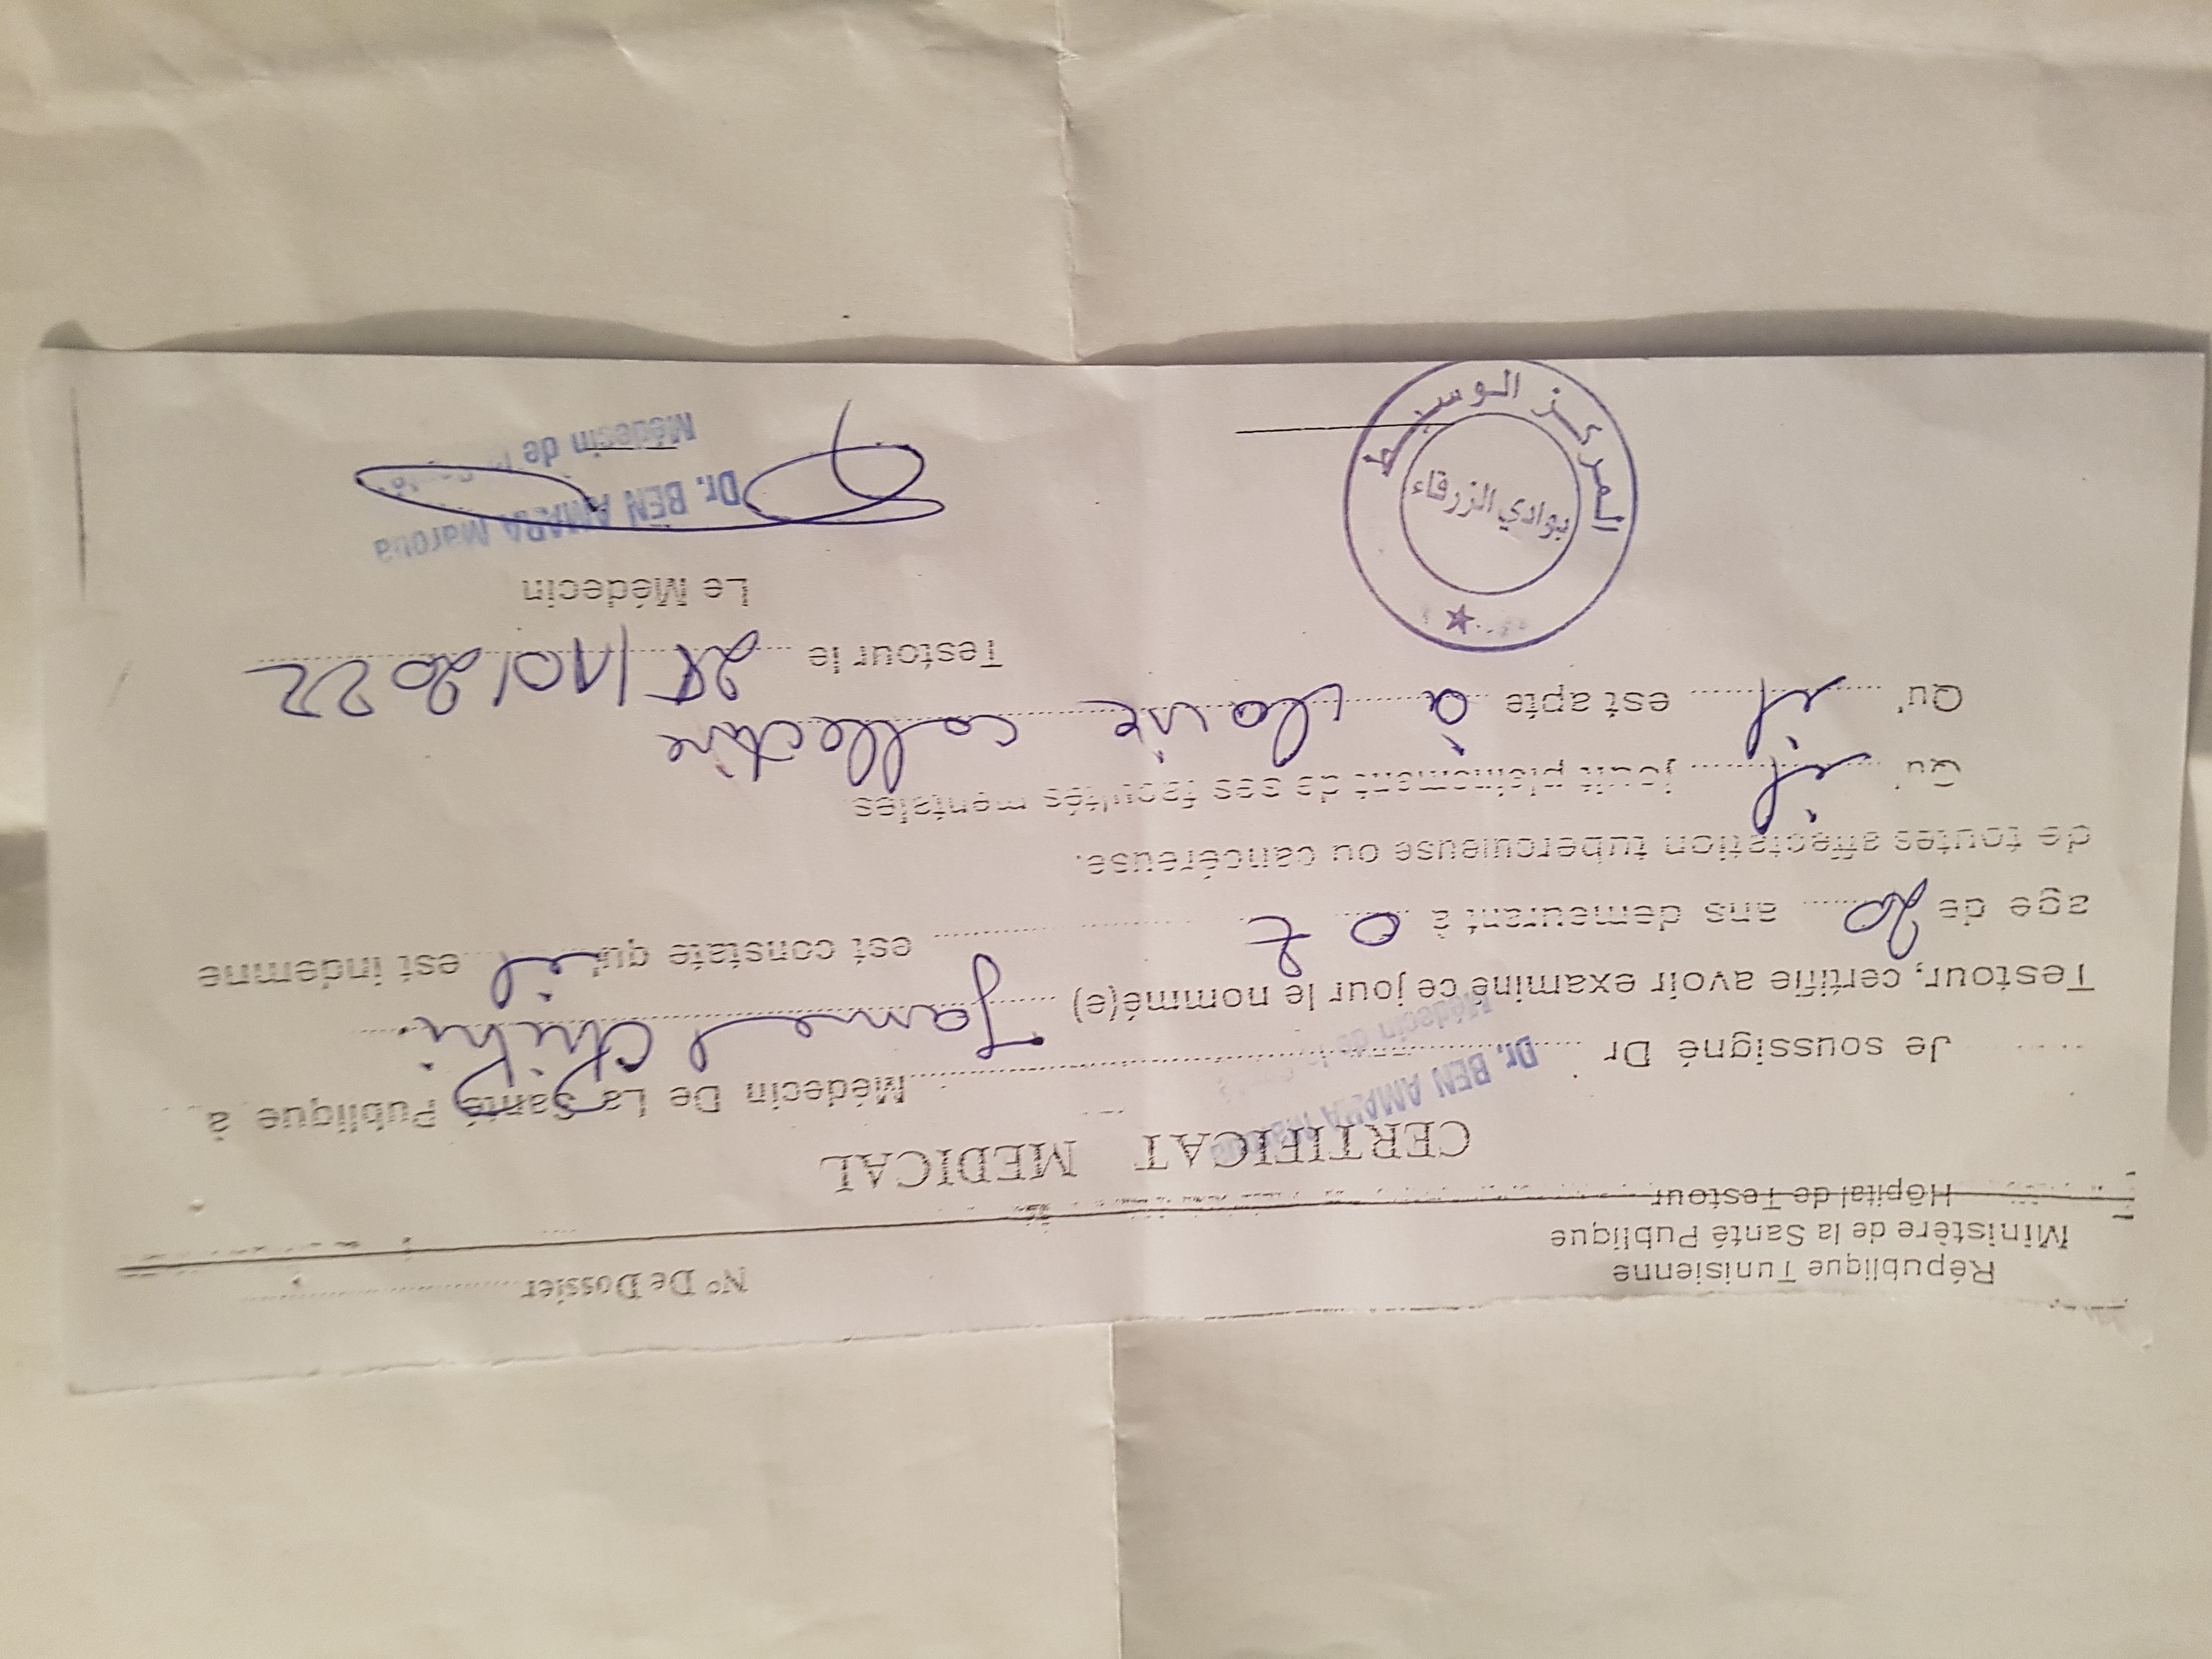 République Tunisienne
Ministère de la Santé Publique
Hôpital de Testour
N° De Dossier
CERTIFICAT MEDICAL
Je soussigné Dr Dr. BEN AMARA Maroua Médecin De La Santé Publique à
Médecin de la
Testour, certifie avoir examiné ce jour le nommé(e) Jamel Chihi
age de 20 ans demeurant à O Z est constate qu'il est indemne
de toutes affectation tuberculeuse ou cancéreuse.
Qu' il jouit pleinement de ses facultés mentales.
Qu' il est apte à la vie collective
Testour le /10/2022
Le Médecin
Dr. BEN AMARA Maroua
Médecin de la Santé
المركز الوسيط
بوادي الزرقاء